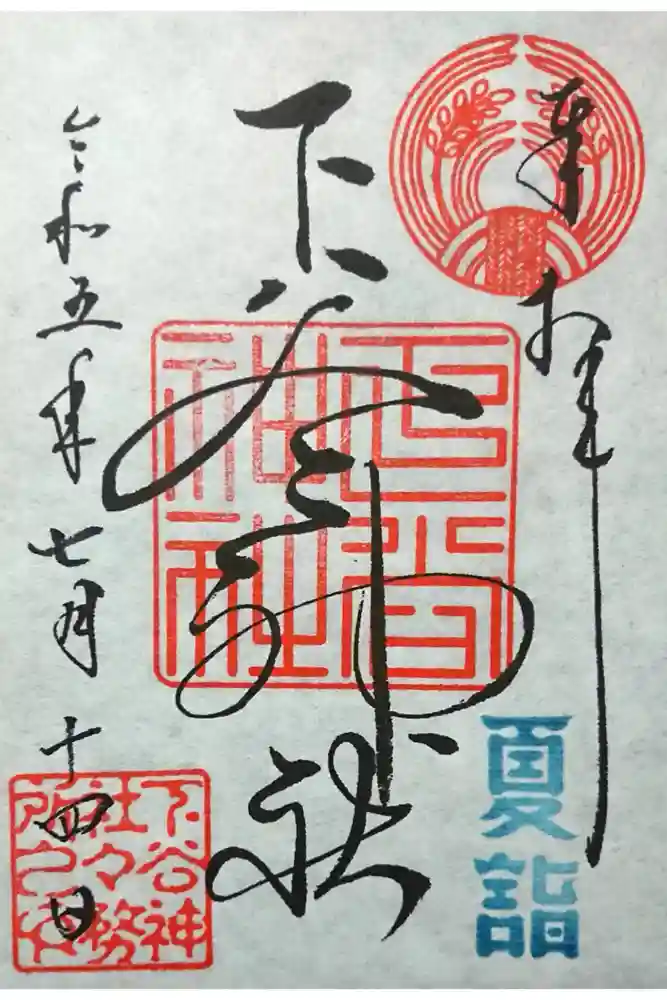 奉拝
夏詣
下谷神社
下谷神社
令和五年七月十四日
下谷神
社々務
所之印